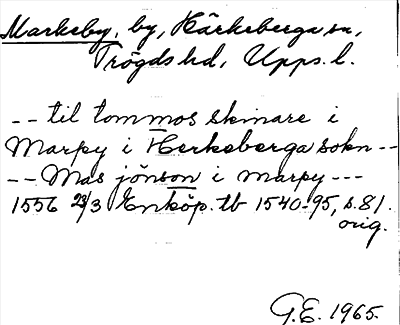 Markeby, by, Härkeberga sn,
Trögds hd, Upps. l.
-- til tommos skinare i
Marpy i Herkeberga sokn --
-- Mas jönson i marpy ---
1556 23/3 Enköp. tb 1540-95, s. 81.
orig.
G.E. 1965.